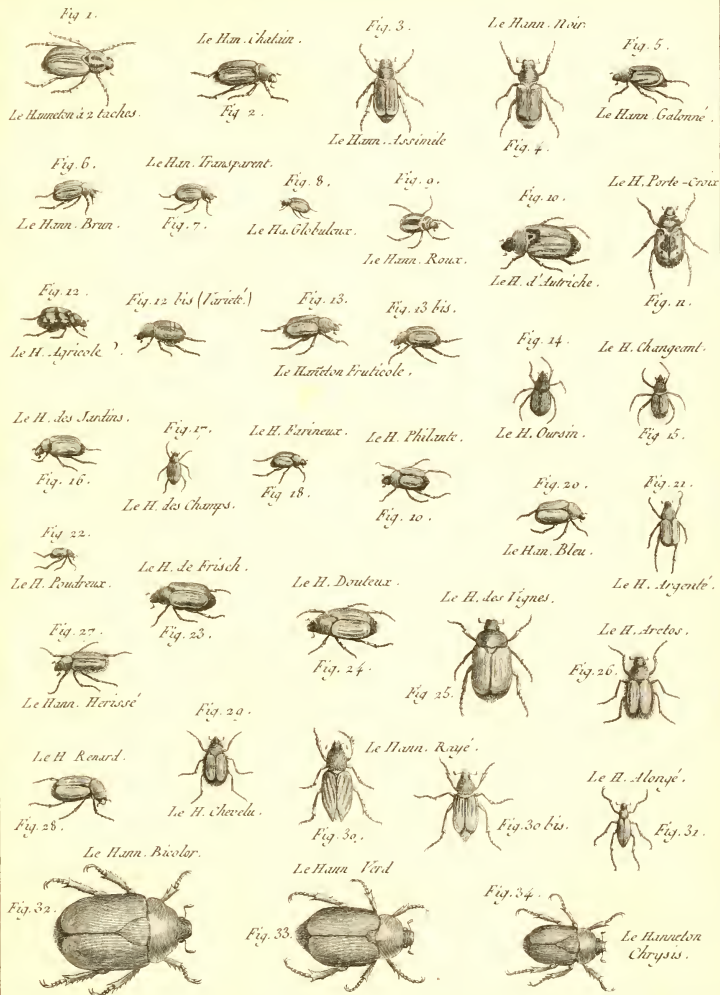 Fig 1.
Le Hanneton à 2 taches.
Le Han. Chatain.
Fig 2.
Fig. 3.
Le Hann. Assimile
Le Hann. Noir.
Fig. 4.
Fig. 5
Le Hann. Galonné.
Fig. 6.
Le Hann. Brun.
Le Han. Transparent.
Fig. 7.
Fig. 8.
Le Ha. Globuleux.
Fig. 9.
Le Hann. Roux.
Fig. 10.
Le H. d'Autriche.
Le H. Porte-Croix
Fig. 11.
Fig. 12.
Le H. Agricole.
Fig. 12 bis (Varieté.)
Fig. 13.
Fig. 13 bis.
Le Hañeton Fruticole.
Fig. 14
Le H. Oursin.
Le H. Changeant.
Fig 15.
Le H. des Jardins.
Fig. 16.
Fig. 17
Le H. des Champs.
Le H. Farineux.
Fig 18.
Le H. Philante.
Fig. 10.
Fig. 20.
Le Han. Bleu.
Fig. 21.
Le H. Argenté.
Fig 22.
Le H. Poudreux.
Le H. de Frisch.
Fig. 23.
Le H. Douteux.
Fig. 24.
Le H. des Vignes.
Fig 25.
Le H. Arctos.
Fig. 26.
Fig. 27.
Le Hann. Herissé
Le H Renard.
Fig. 28.
Fig. 29.
Le H. Chevelu.
Le Hann. Rayé.
Fig. 30.
Fig. 30 bis.
Le H. Alongé.
Fig. 31.
Le Hann. Bicolor.
Fig. 32.
Le Hann Verd
Fig. 33.
Fig. 34.
Le Hanneton
Chrysis.